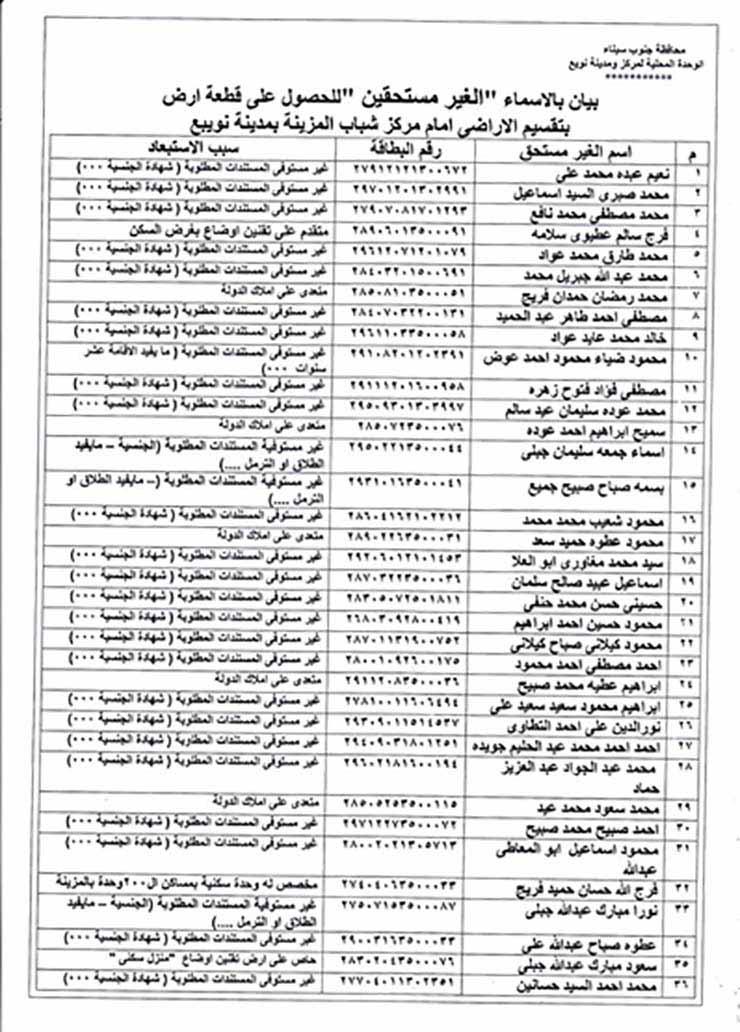 محافظة جنوب سيناء
الوحدة المحلية لمركز ومدينة نويبع
***********
بيان بالاسماء "الغير مستحقين" للحصول على قطعة ارض
بتقسيم الاراضى امام مركز شباب المزينة بمدينة نويبع
م اسم الغير مستحق رقم البطاقة سبب الاستبعاد
١ نعيم عبده محمد على ٢٧٩١٢١٢١٣٠٠٦٧٢ غير مستوفى المستندات المطلوبة ( شهادة الجنسية ٠٠٠)
٢ محمد صبرى السيد اسماعيل ٢٩٧٠١٢٠١٣٠٢٩٩١ غير مستوفى المستندات المطلوبة ( شهادة الجنسية ٠٠٠)
٣ محمد مصطفى محمد نافع ٢٧٩٠٧٠٨١٧٠١٢٩٣ غير مستوفى المستندات المطلوبة ( شهادة الجنسية ٠٠٠)
٤ فرج سالم عطيوى سلامه ٢٨٩٠٦٠١٣٥٠٠٠٩١ متقدم على تقنين اوضاع بغرض السكن
٥ محمد طارق محمد عواد ٢٩٦١٢٠٧١٢٠١٠٧٩ غير مستوفى المستندات المطلوبة ( شهادة الجنسية ٠٠٠)
٦ محمد عبد الله جبريل محمد ٢٨٤٠٣٢٠١٥٠٠٦٩١ غير مستوفى المستندات المطلوبة ( شهادة الجنسية ٠٠٠)
٧ محمد رمضان حمدان فريج ٢٨٥٠٨١٠٣٥٠٠٠٥١ متعدى على املاك الدولة
٨ مصطفى احمد طاهر عبد الحميد ٢٨٤٠٧٠٣٢٢٠٠١٣١ غير مستوفى المستندات المطلوبة ( شهادة الجنسية ٠٠٠)
٩ خالد محمد عايد عواد ٢٩٦١١٠٣٣٥٠٠٠٥٨ غير مستوفى المستندات المطلوبة ( شهادة الجنسية ٠٠٠)
١٠ محمود ضياء محمود احمد عوض ٢٩١٠٨٢٠١٢٠٢٣٩١ غير مستوفى المستندات المطلوبة ( ما يفيد الاقامة عشر
سنوات ٠٠٠)
١١ مصطفى فؤاد فتوح زهره ٢٩١١١٢٠١٦٠٠٩٥٨ غير مستوفى المستندات المطلوبة ( شهادة الجنسية ٠٠٠)
١٢ محمد عوده سليمان عيد سالم ٢٩٥٠٩٣٠١٣٠٣٩٩٧ غير مستوفى المستندات المطلوبة ( شهادة الجنسية ٠٠٠)
١٣ سميح ابراهيم احمد عوده ٢٨٥٠٧٢٣٥٠٠٠٧٦ متعدى على املاك الدولة
١٤ اسماء جمعه سليمان جبلى ٢٩٥٠٢٢١٣٥٠٠٠٤٤ غير مستوفية المستندات المطلوبة (الجنسية – مايفيد
الطلاق او الترمل ....)
١٥ بسمه صباح صبيح جميع ٢٩٣١٠١٦٣٥٠٠٠٤١ غير مستوفية المستندات المطلوبة (– مايفيد الطلاق او
الترمل ....)
١٦ محمود شعيب محمد محمد ٢٨٦٠٤١٦٢١٠٢٢١٢ غير مستوفى المستندات المطلوبة ( شهادة الجنسية ٠٠٠)
١٧ محمود عطوه حميد سعد ٢٨٩٠٢٢٦٣٥٠٠٠٣١ متعدى على املاك الدولة
١٨ سيد محمد مغاورى ابو العلا ٢٩٢٠٦٠١٢١٠١٤٥٣ غير مستوفى المستندات المطلوبة ( شهادة الجنسية ٠٠٠)
١٩ اسماعيل عبيد صالح سلمان ٢٨٧٠٣٢٢٣٥٠٠٠٣٦ غير مستوفى المستندات المطلوبة ( شهادة الجنسية ٠٠٠)
٢٠ حسينى حسن محمد حنفى ٢٨٣٠٥٠٧٢٥٠١٨١١ غير مستوفى المستندات المطلوبة ( شهادة الجنسية ٠٠٠)
٢١ محمود حسين احمد ابراهيم ٢٦٨٠٣٠٩٢٨٠٠٤١٩ غير مستوفى المستندات المطلوبة ( شهادة الجنسية ٠٠٠)
٢٢ محمود كيلانى صباح كيلانى ٢٨٧٠١١٣١٩٠٠٧٥٢ غير مستوفى المستندات المطلوبة ( شهادة الجنسية ٠٠٠)
٢٣ احمد مصطفى احمد محمود ٢٨٠٠١٠٩٢٦٠٠١٧٥ غير مستوفى المستندات المطلوبة ( شهادة الجنسية ٠٠٠)
٢٤ ابراهيم عطيه محمد صبيح ٢٩١١٢٠٨٣٥٠٠٠٣٦ متعدى على املاك الدولة
٢٥ ابراهيم محمود سعيد سعيد على ٢٧٨١٠٠١١٦٠٦٤٩٤ غير مستوفى المستندات المطلوبة ( شهادة الجنسية ٠٠٠)
٢٦ نورالدين على احمد النطاوى ٢٩٣٠٩٠١١٥١٤٥٣٧ غير مستوفى المستندات المطلوبة ( شهادة الجنسية ٠٠٠)
٢٧ احمد احمد محمد عبد الحليم جويده ٢٩٤٠٩٠٣١٨٠١٢٥١ غير مستوفى المستندات المطلوبة ( شهادة الجنسية ٠٠٠)
٢٨ محمد عبد الجواد عبد العزيز ٢٩٦٠٢١٨١٦٠٠١٩٤ غير مستوفى المستندات المطلوبة ( شهادة الجنسية ٠٠٠)
حماد
٢٩ محمد سعود محمد عيد ٢٨٥٠٥٢٥٣٥٠٠١١٥ متعدى على املاك الدولة
٣٠ احمد صبيح محمد صبيح ٢٩٧١٢٢٧٣٥٠٠٠٧٢ غير مستوفى المستندات المطلوبة ( شهادة الجنسية ٠٠٠)
٣١ محمود اسماعيل ابو المعاطى ٢٨٠٠٢٠٢١٣٠٥٧١٣ غير مستوفى المستندات المطلوبة ( شهادة الجنسية ٠٠٠)
عبدالله
٣٢ فرج الله حسان حميد فريج ٢٧٤٠٤٠٦٣٥٠٠٠٣٣ مخصص له وحدة سكنية بمساكن ال٢٠٠وحدة بالمزينة
٣٣ نورا مبارك عبدالله جبلى ٢٧٥٠٧١٥٣٥٠٠٠٨٧ غير مستوفية المستندات المطلوبة (الجنسية – مايفيد
الطلاق او الترمل ....)
٣٤ عطوه صباح عبدالله على ٢٩٠٠٣١٦٣٥٠٠٠٣٣ غير مستوفى المستندات المطلوبة ( شهادة الجنسية ٠٠٠)
٣٥ سعود مبارك عبدالله جبلى ٢٨٣٠٢٠٤٣٥٠٠٠٧٦ حاص على ارض تقنين اوضاع "منزل سكنى "
٣٦ محمد احمد السيد حسانين ٢٧٧٠٤٠١١٣٠٢٣٥١ غير مستوفى المستندات المطلوبة ( شهادة الجنسية ٠٠٠)